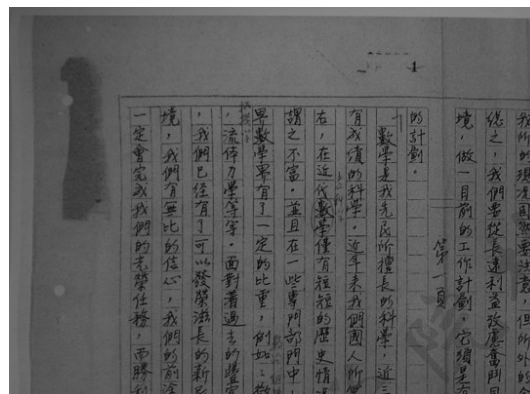 1
我所的現況同
總之，我們要從長遠利益攷慮奮鬥目
境，做一目前的工作計劃。它須是
第一頁
的計劃。
數學是我先民所擅長的科學，近三
有成績的科學。近年來我們國人所
在，在近代數學僅有短短的歷史情
謂之不富。並且在一些專門部門中，
界數學界有了一定的比重，例如：
，流体力學等等。面對着過去的
，我們已經有了可以發榮滋長的新
境，我們有無比的信心，我們的前途
一定會完成我們的光榮任務，而勝利